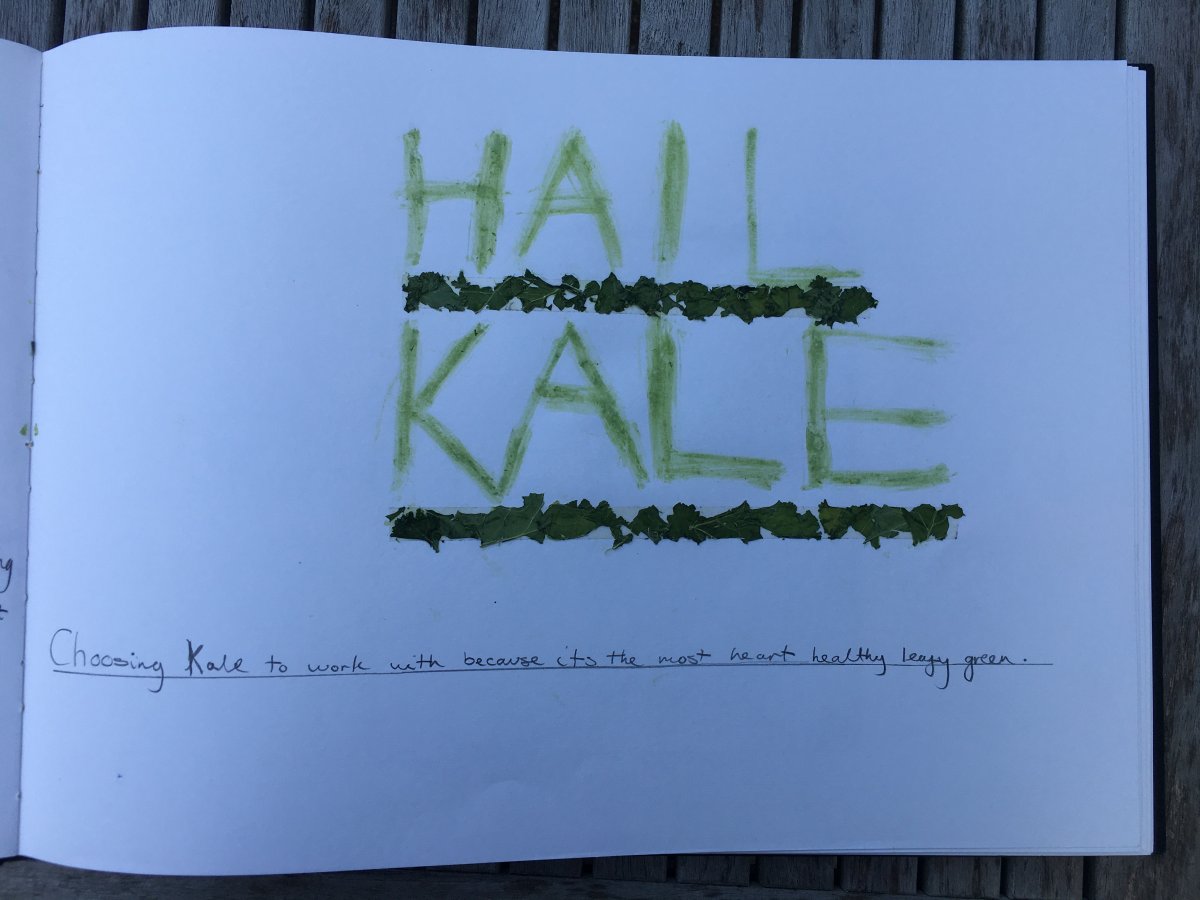 HAIL
KALE
Choosing Kale to work with because it's the most heart healthy leafy green.